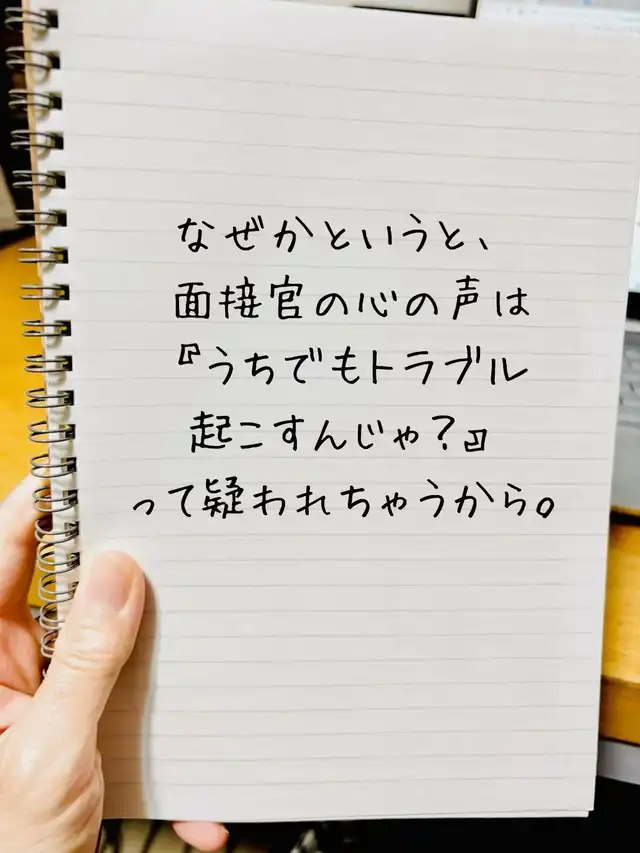 なぜかというと、
面接官の心の声は
『うちでもトラブル
起こすんじゃ？』
って疑われちゃうから。